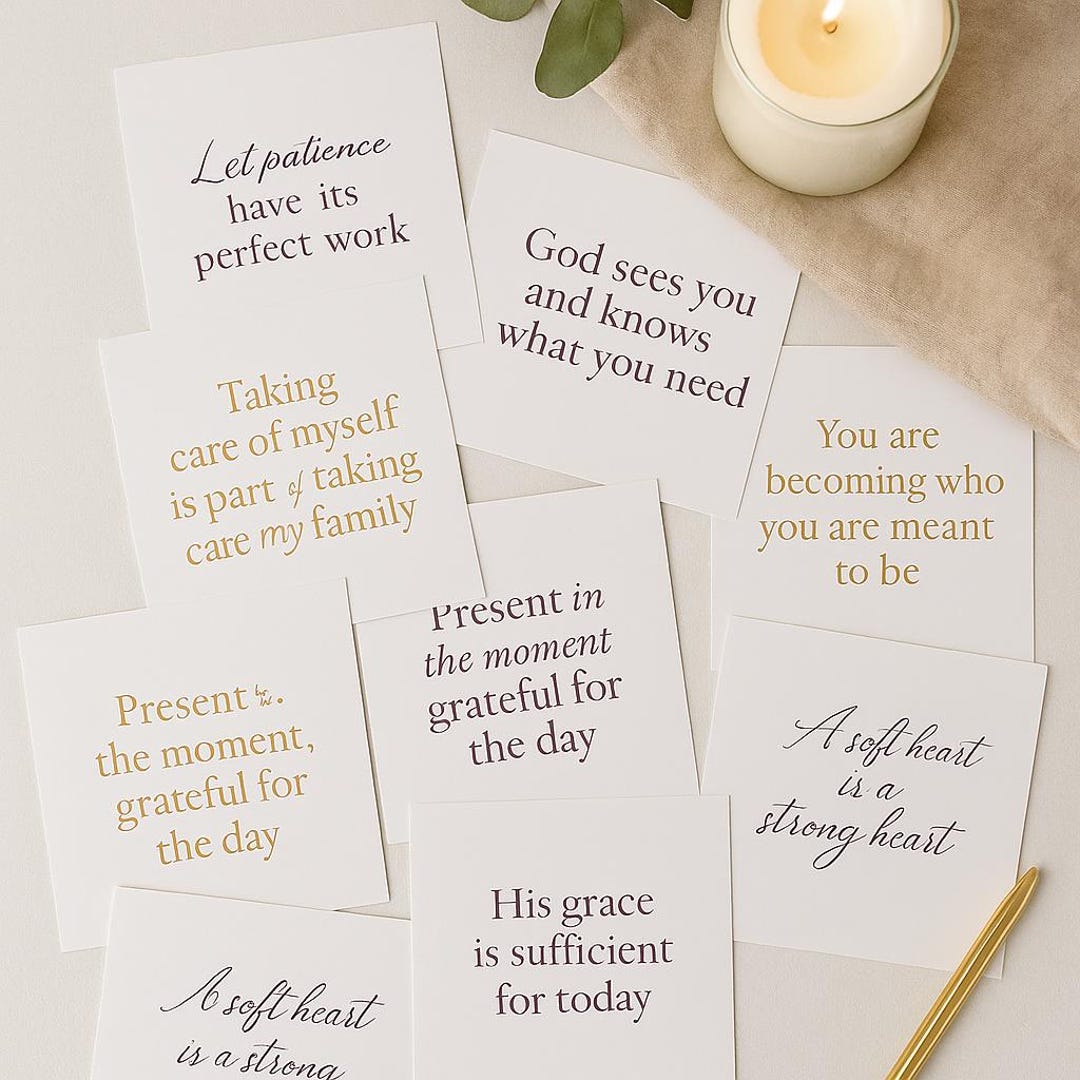 Let patience
have its
perfect work
God sees you
and knows
what you need
Taking
care of myself
is part of taking
care my family
You are
becoming who
you are meant
to be
Present in
the moment
grateful for
the day
Present
the moment,
grateful for
the day
A soft heart
is a
strong heart
His grace
is sufficient
for today
A soft heart
is a strong